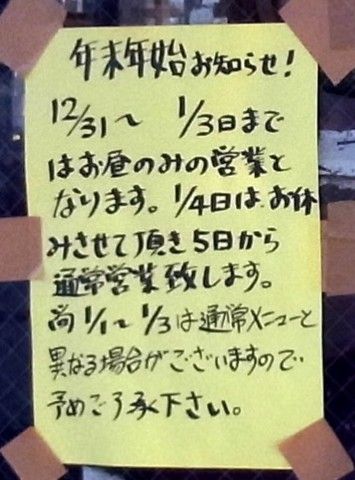 年末年始お知らせ!
12/31〜 1/3日まで
はお昼のみの営業と
なります。1/4日は、お休
みさせて頂き5日から
通常営業致します。
尚1/1〜1/3は通常メニューと
異なる場合がございますので、
予めご了承下さい。